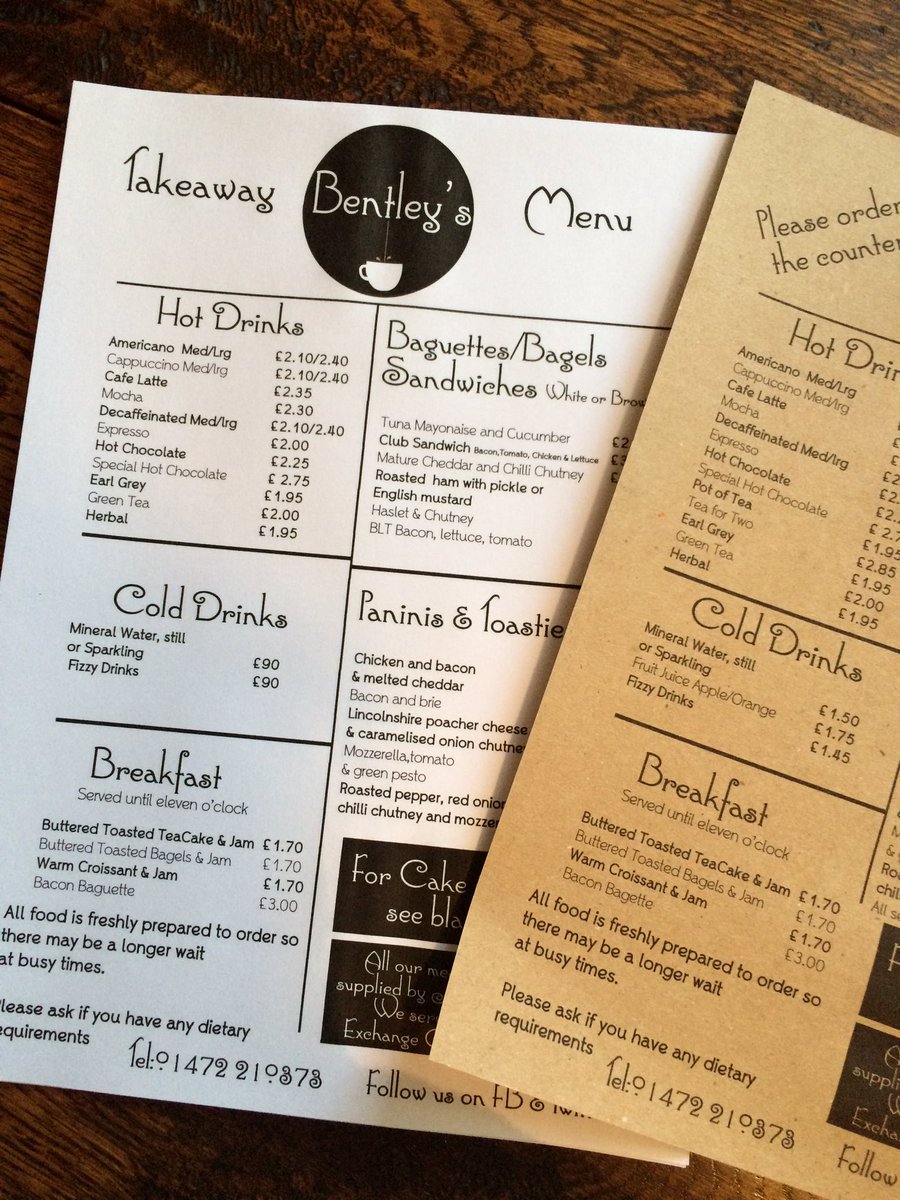 Takeaway
Bentley's
Menu
Hot Drinks
Americano Med/Lrg £2.10/2.40
Cappuccino Med/lrg £2.10/2.40
Cafe Latte £2.35
Mocha £2.30
Decaffeinated Med/lrg £2.10/2.40
Expresso £2.00
Hot Chocolate £2.25
Special Hot Chocolate £2.75
Earl Grey £1.95
Green Tea £2.00
Herbal £1.95
Cold Drinks
Mineral Water, still
or Sparkling £90
Fizzy Drinks £90
Breakfast
Served until eleven o'clock
Buttered Toasted TeaCake & Jam £1.70
Buttered Toasted Bagels & Jam £1.70
Warm Croissant & Jam £1.70
Bacon Baguette £3.00
All food is freshly prepared to order so
there may be a longer wait
at busy times.
Please ask if you have any dietary
requirements
Tel:01472 210373
Baguettes/Bagels
Sandwiches White or
Tuna Mayonaise and Cucumber
Club Sandwich Bacon,Tomato, Chicken & Lettuce
Mature Cheddar and Chilli Chutney
Roasted ham with pickle or
English mustard
Haslet & Chutney
BLT Bacon, lettuce, tomato
Paninis &
Chicken and bacon
& melted cheddar
Bacon and brie
Lincolnshire poacher cheese
& caramelised onion
Mozzerella,tomato
& green pesto
Roasted pepper, red onion
chilli chutney and
For Cake
see
All our
supplied by
We
Exchange
Follow us on FB &
Please order
the counter
Hot
Americano Med/Lrg
Cappuccino Med/lrg
Cafe Latte
Mocha
Decaffeinated Med/lrg
Expresso
Hot Chocolate
Special Hot Chocolate
Pot of Tea £1.95
Tea for Two £2.85
Earl Grey £1.95
Green Tea £2.00
Herbal £1.95
Cold Drinks
Mineral Water, still
or Sparkling £1.50
Fruit Juice Apple/Orange £1.75
Fizzy Drinks £1.45
Breakfast
Served until eleven o'clock
Buttered Toasted TeaCake & Jam £1.70
Buttered Toasted Bagels & Jam £1.70
Warm Croissant & Jam £1.70
Bacon Bagette £3.00
All food is freshly prepared to order so
there may be a longer wait
at busy times.
Please ask if you have any dietary
requirements
Tel:01472 210373
Follow